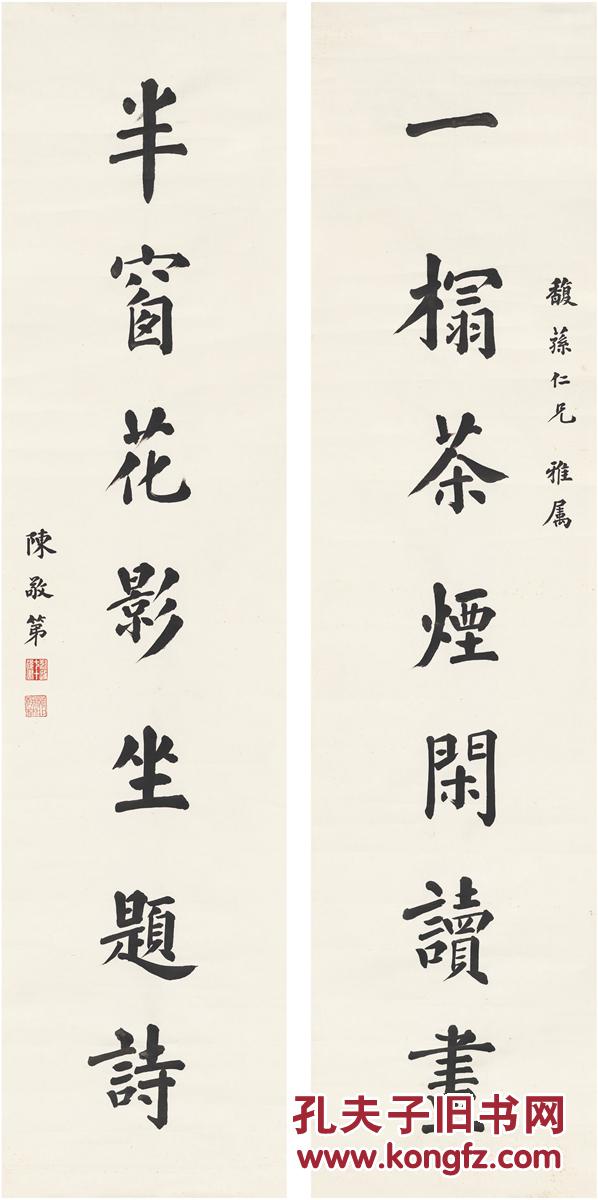 馥蓀仁兄 雅属
一榻茶煙閑讀書
半窗花影坐題詩
陳敬第
孔夫子旧书网
www.kongfz.com